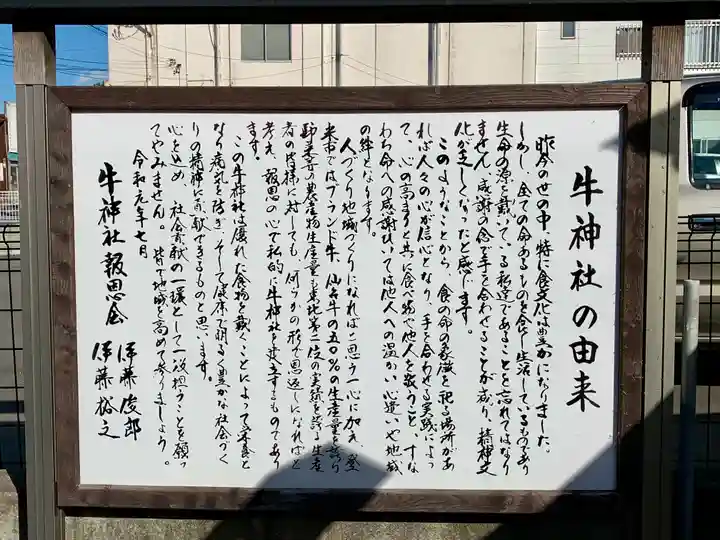 牛神社の由来
昨今の世の中、特に食文化は豊かになりました。
しかし、全ての命あるものを食し生活しているものであり
生命の源を戴いている私達であることを忘れてはなり
ません。感謝の念で手を合わせることが減り、精神文
化が乏しくなったと感じます。
このようなことから、食の命の象徴を祀る場所があ
れば人々の心が信心となり、手を合わせる実践によっ
て、心の高まりと共に食べ物で他人を敬うこと、すな
わち命への感謝ひいては他人への温かい心遣いや地域
の絆となります。
人づくり地域づくりになればと思う一心に加え、登
米市ではブランド牛、仙台牛の五〇%の生産量を誇り
野菜等の農産物生産量も東北第二位の実績を誇る生産
者の皆様に対しても、何らかの形で恩返しになればと
考え、報恩の心で私的に牛神社を建立するものであり
ます。
この牛神社は優れた食物を戴くことによって栄養と
なり病気を防ぎ、そして健康で明るく豊かな社会づく
りの精神に貢献できるものと思います。
心を込め、社会貢献の一環として一役担うことを願っ
てやみません。皆で地域を高めて参りましょう。
令和元年七月
牛神社報恩会
伊藤俊郎
伊藤裕之